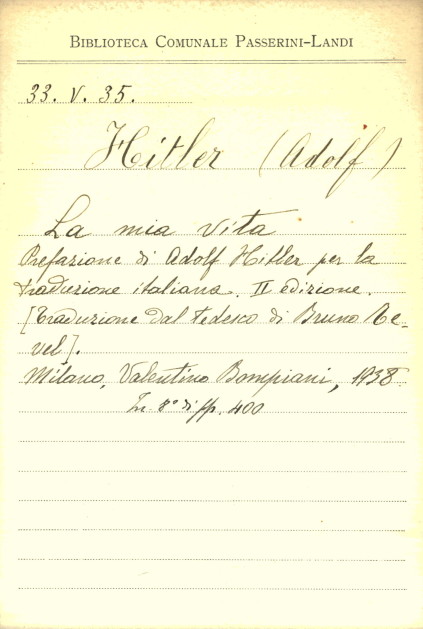 BIBLIOTECA COMUNALE PASSERINI-LANDI
33. V. 35.
Hitler (Adolf)
La mia vita
Prefazione di Adolf Hitler per la
traduzione italiana. II edizione.
[Traduzione dal tedesco di Bruno Re-
vel].
Milano, Valentino Bompiani, 1938
In 8° di pp. 400